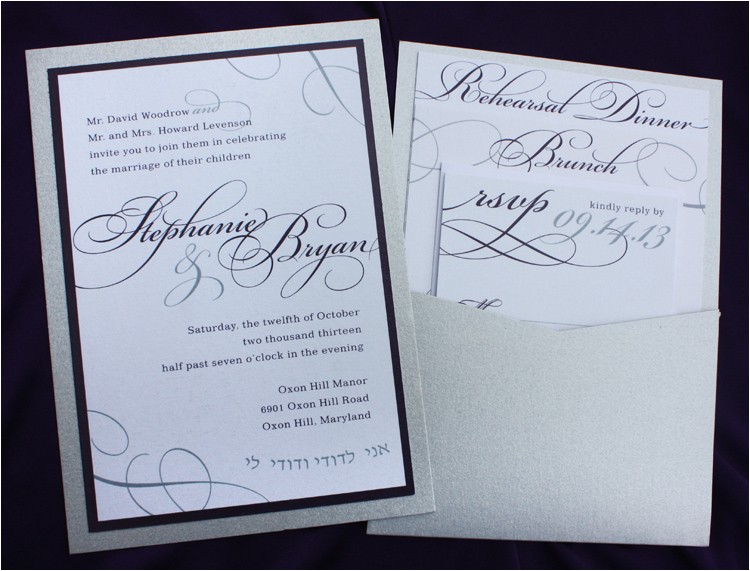 Mr. David Woodrow and
Mr. and Mrs. Howard Levenson
invite you to join them in celebrating
the marriage of their children
Stephanie
& Bryan
Saturday, the twelfth of October
two thousand thirteen
half past seven o'clock in the evening
Oxon Hill Manor
6901 Oxon Hill Road
Oxon Hill, Maryland
אני לדודי ודודי לי
Rehearsal Dinner
Brunch
rsvp
kindly reply by
09.14.13